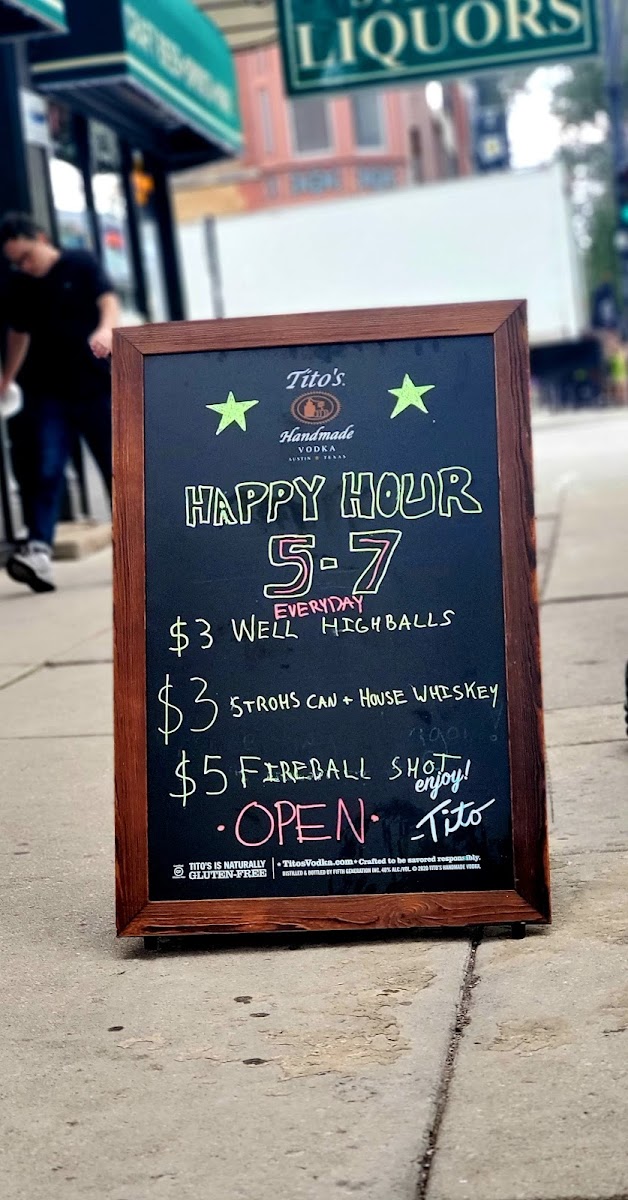 LIQUORS
Tito's
Handmade
VODKA
AUSTIN TEXAS
HAPPY HOUR
5-7
EVERYDAY
$3 WELL HIGHBALLS
$3 STROHS CAN + HOUSE WHISKEY
$5 FIREBALL SHOT
enjoy!
-Tito
•OPEN•
TITO'S IS NATURALLY
GLUTEN-FREE
• TitosVodka.com • Crafted to be savored responsibly.
DISTILLED & BOTTLED BY FIFTH GENERATION INC. 40% ALC./VOL. © 2020 TITO'S HANDMADE VODKA.